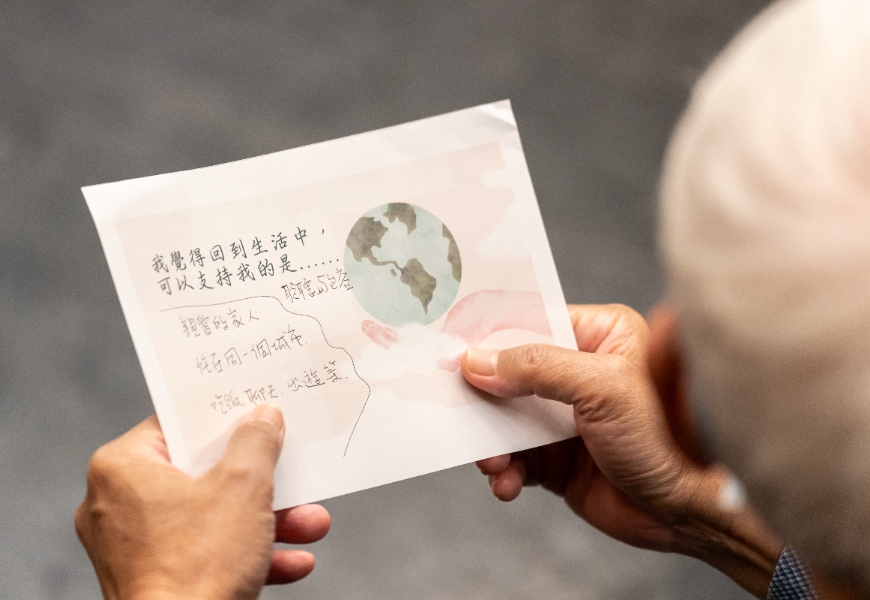 我覺得回到生活中，
可以支持我的是......
聆聽與包容
親密的家人
住在同一個城市.
吃飯聊天.出遊等.